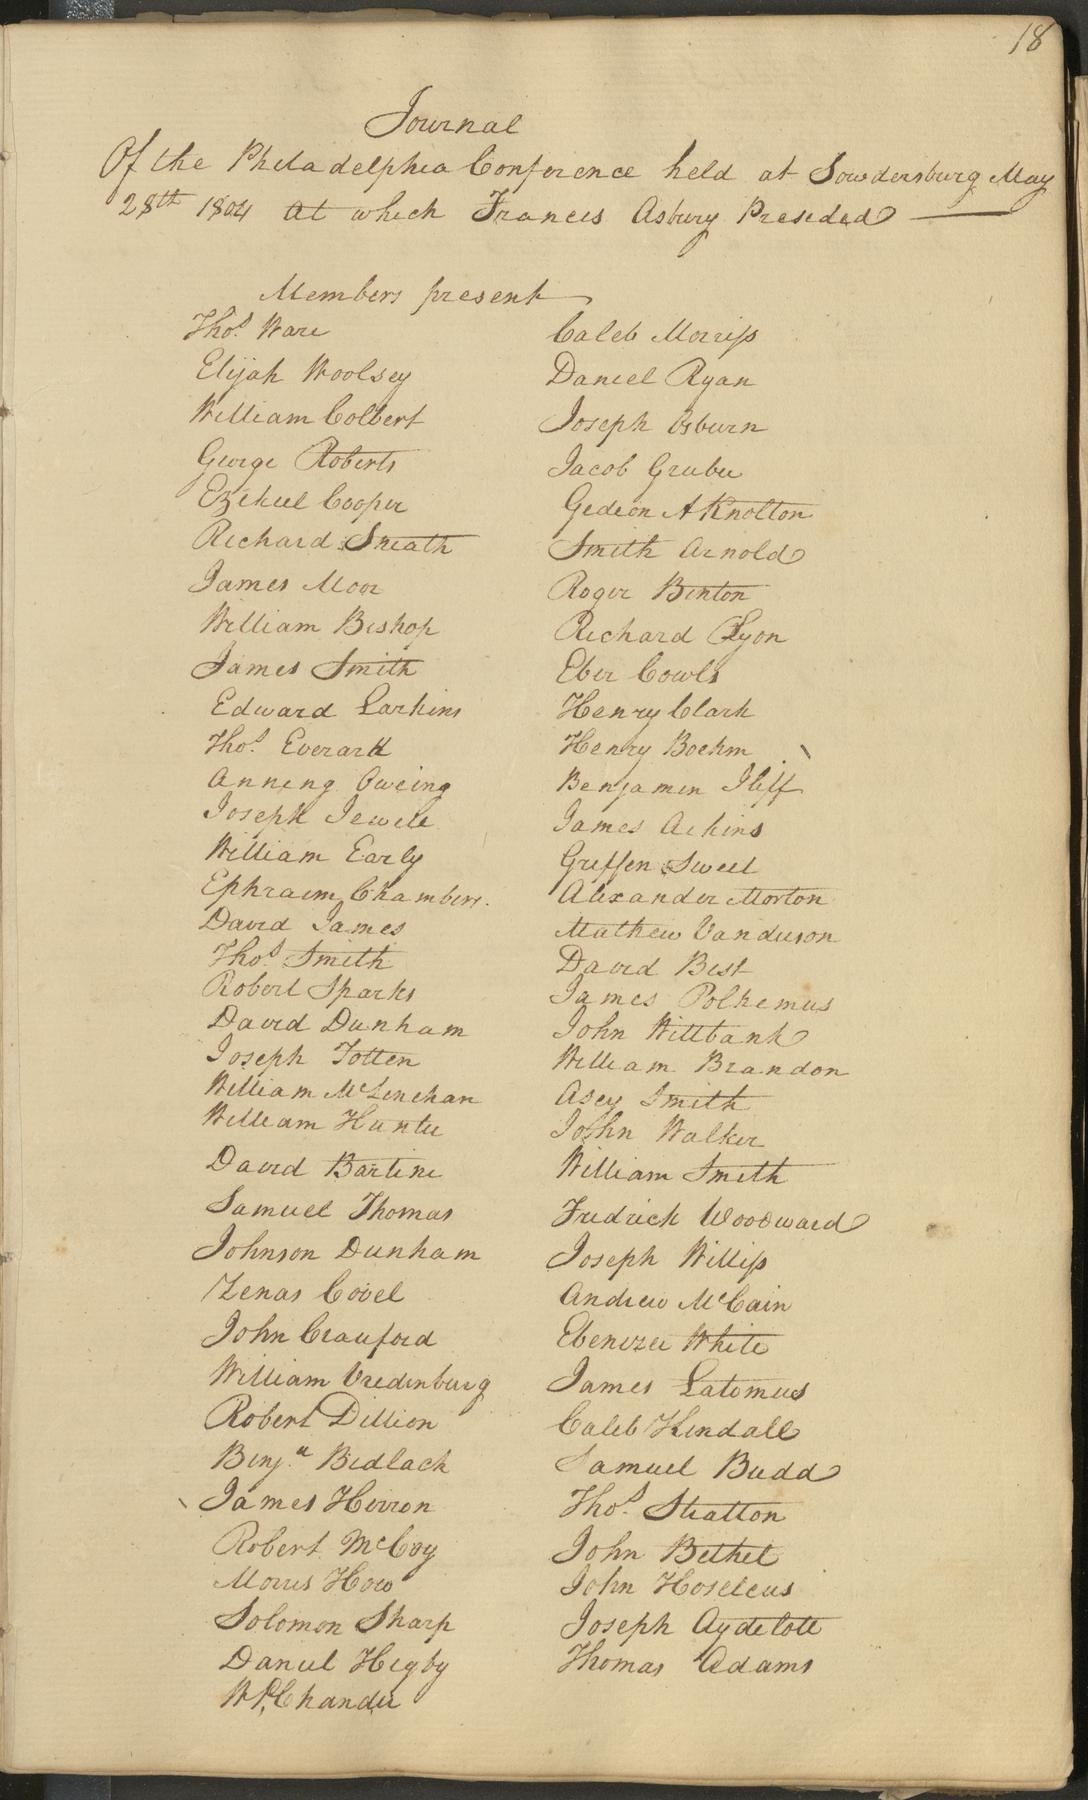 18
Journal
Of the Philadelphia Conference held at Sowdersburg May
28th 1804 at which Francis Asbury Presided
Members present
Thos. Ware
Elijah Woolsey
William Colbert
George Roberts
Ezekiel Cooper
Richard Sneath
James Moor
William Bishop
James Smith
Edward Larkins
Thos. Everard
Anning Oweing
Joseph Jewell
William Early
Ephraim Chambers.
David James
Thos Smith
Robert Sparks
David Dunham
Joseph Totten
William McLenehan
William Hunter
David Bartine
Samuel Thomas
Johnson Dunham
Zenas Covel
John Crauford
William Vredenburg
Robert Dillion
Benjn Bidlack
James Herron
Robert McCoy
Morris How
Solomon Sharp
Daniel Higby
W P. Chander
Caleb Morriss
Daniel Ryan
Joseph Osburn
Jacob Gruber
Gedeon A Knolton
Smith Arnold
Roger Benton
Richard Lyon
Eber Cowls
Henry Clark
Henry Boehm
Benjamin Iliff
James Aikins
Griffen Sweet
Alexander Morton
Mathew Vanduson
David Best
James Polhemus
John Wiltbank
William Brandon
Asey Smith
John Walker
William Smith
Fredrick Woodward
Joseph Williss
Andrew McCain
Ebenezer White
James Latomus
Caleb Kendall
Samuel Budd
Thos. Stratton
John Bethel
John Hoseleus
Joseph Aydelott
Thomas Adams